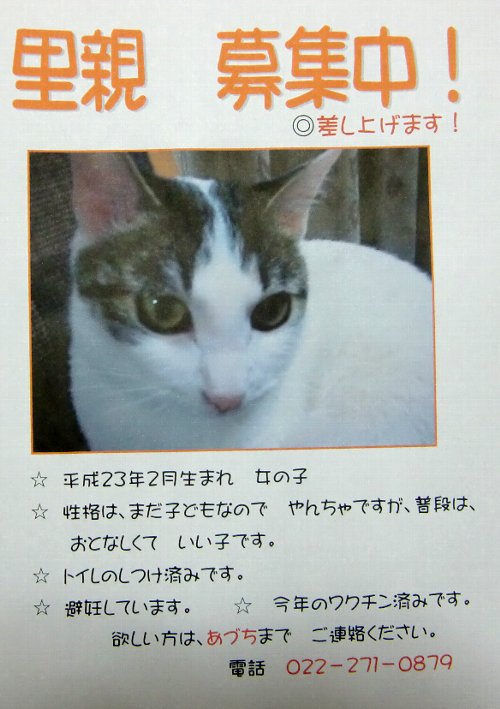 里親　募集中！
◎差し上げます！
☆ 平成23年2月生まれ　女の子
☆ 性格は、まだ子どもなので　やんちゃですが、普段は、
おとなしくて　いい子です。
☆ トイレのしつけ済みです。
☆ 避妊しています。　☆ 今年のワクチン済みです。
欲しい方は、あづちまで　ご連絡ください。
電話　022-271-0879